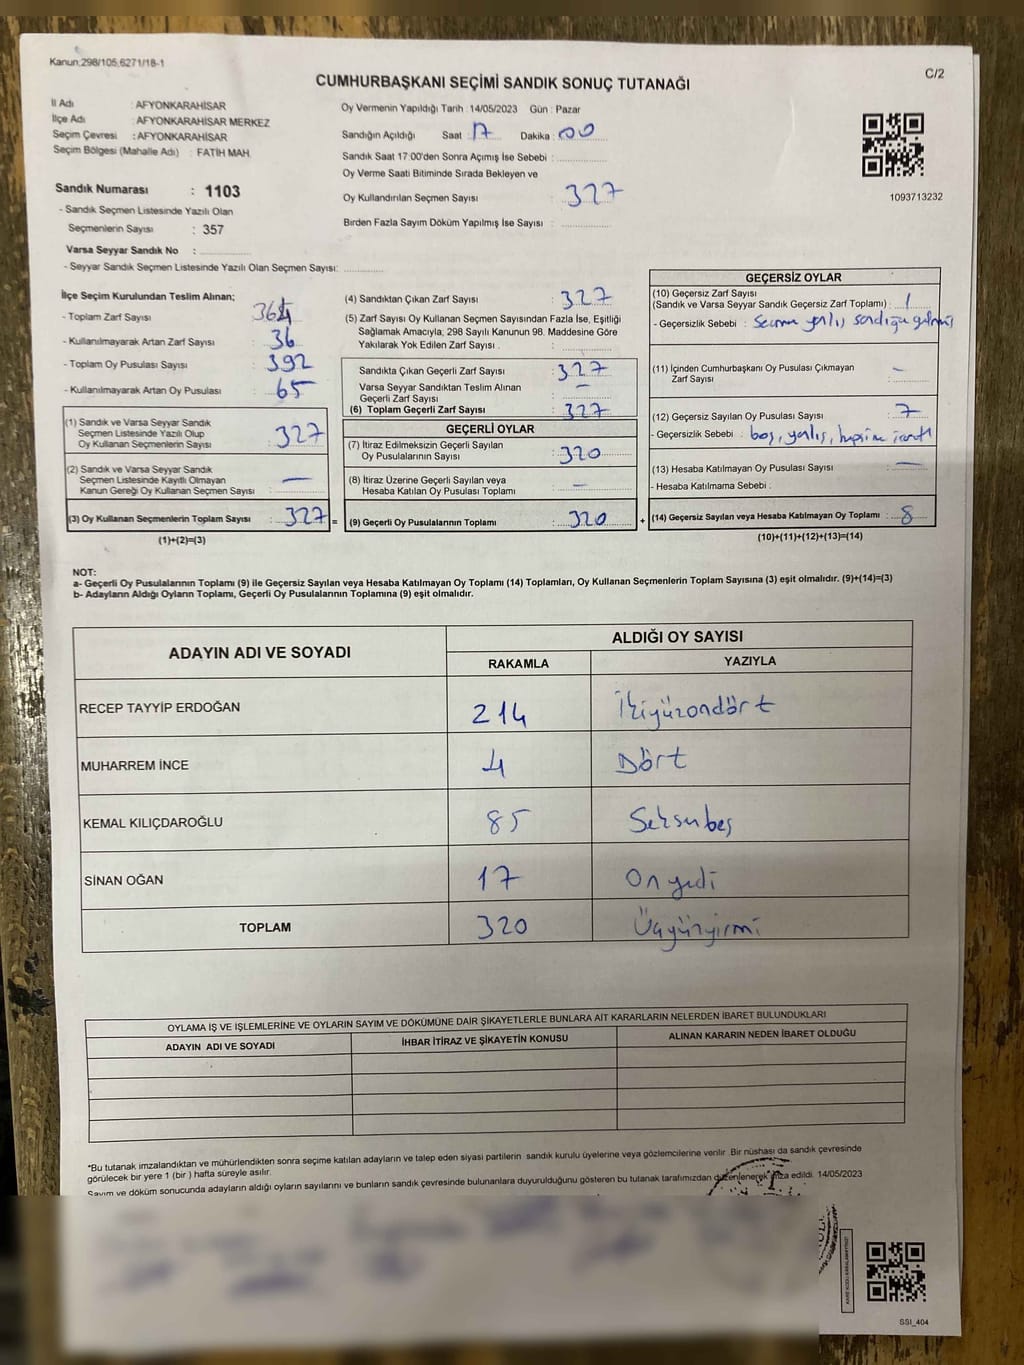 Kanun;298/105,6271/18-1
C/2
CUMHURBAŞKANI SEÇİMİ SANDIK SONUÇ TUTANAĞI
İl Adı : AFYONKARAHİSAR
İlçe Adı : AFYONKARAHİSAR MERKEZ
Seçim Çevresi : AFYONKARAHİSAR
Seçim Bölgesi (Mahalle Adı) : FATİH MAH.
Sandık Numarası : 1103
- Sandık Seçmen Listesinde Yazılı Olan
Seçmenlerin Sayısı : 357
Varsa Seyyar Sandık No :
- Seyyar Sandık Seçmen Listesinde Yazılı Olan Seçmen Sayısı:
Oy Vermenin Yapıldığı Tarih :14/05/2023 Gün : Pazar
Sandığın Açıldığı Saat : 17 Dakika : 00
Sandık Saat 17:00'den Sonra Açımış İse Sebebi :
Oy Verme Saati Bitiminde Sırada Bekleyen ve
Oy Kullandırılan Seçmen Sayısı : 327
Birden Fazla Sayım Döküm Yapılmış İse Sayısı :
1093713232
İlçe Seçim Kurulundan Teslim Alınan;
- Toplam Zarf Sayısı :
- Kullanılmayarak Artan Zarf Sayısı : 36
- Toplam Oy Pusulası Sayısı : 392
- Kullanılmayarak Artan Oy Pusulası : 65
(1) Sandık ve Varsa Seyyar Sandık
Seçmen Listesinde Yazılı Olup
Oy Kullanan Seçmenlerin Sayısı : 327
(2) Sandık ve Varsa Seyyar Sandık
Seçmen Listesinde Kayıtlı Olmayan
Kanun Gereği Oy Kullanan Seçmen Sayısı : —
(3) Oy Kullanan Seçmenlerin Toplam Sayısı : 327 =
(1)+(2)=(3)
(4) Sandıktan Çıkan Zarf Sayısı : 327
(5) Zarf Sayısı Oy Kullanan Seçmen Sayısından Fazla İse, Eşitliği
Sağlamak Amacıyla, 298 Sayılı Kanunun 98. Maddesine Göre
Yakılarak Yok Edilen Zarf Sayısı . :
Sandıkta Çıkan Geçerli Zarf Sayısı : 327
Varsa Seyyar Sandıktan Teslim Alınan
Geçerli Zarf Sayısı : —
(6) Toplam Geçerli Zarf Sayısı : 327
GEÇERLİ OYLAR
(7) İtiraz Edilmeksizin Geçerli Sayılan
Oy Pusulalarının Sayısı : 320
(8) İtiraz Üzerine Geçerli Sayılan veya
Hesaba Katılan Oy Pusulası Toplamı : —
(9) Geçerli Oy Pusulalarının Toplamı : 320 +
GEÇERSİZ OYLAR
(10) Geçersiz Zarf Sayısı
(Sandık ve Varsa Seyyar Sandık Geçersiz Zarf Toplamı) : 1
- Geçersizlik Sebebi :
(11) İçinden Cumhurbaşkanı Oy Pusulası Çıkmayan
Zarf Sayısı : —
(12) Geçersiz Sayılan Oy Pusulası Sayısı : 7
- Geçersizlik Sebebi : boş, yanlış,
(13) Hesaba Katılmayan Oy Pusulası Sayısı : —
- Hesaba Katılmama Sebebi :
(14) Geçersiz Sayılan veya Hesaba Katılmayan Oy Toplamı : 8
(10)+(11)+(12)+(13)=(14)
NOT:
a- Geçerli Oy Pusulalarının Toplamı (9) ile Geçersiz Sayılan veya Hesaba Katılmayan Oy Toplamı (14) Toplamları, Oy Kullanan Seçmenlerin Toplam Sayısına (3) eşit olmalıdır. (9)+(14)=(3)
b- Adayların Aldığı Oyların Toplamı, Geçerli Oy Pusulalarının Toplamına (9) eşit olmalıdır.
ADAYIN ADI VE SOYADI
ALDIĞI OY SAYISI
RAKAMLA YAZIYLA
RECEP TAYYİP ERDOĞAN 214 İkiyüzondört
MUHARREM İNCE 4 Dört
KEMAL KILIÇDAROĞLU 85 Seksenbeş
SİNAN OĞAN 17 Onyedi
TOPLAM 320 Üçyüzyirmi
OYLAMA İŞ VE İŞLEMLERİNE VE OYLARIN SAYIM VE DÖKÜMÜNE DAİR ŞİKAYETLERLE BUNLARA AİT KARARLARIN NELERDEN İBARET BULUNDUKLARI
ADAYIN ADI VE SOYADI İHBAR İTİRAZ VE ŞİKAYETİN KONUSU ALINAN KARARIN NEDEN İBARET OLDUĞU
*Bu tutanak imzalandıktan ve mühürlendikten sonra seçime katılan adayların ve talep eden siyasi partilerin sandık kurulu üyelerine veya gözlemcilerine verilir .Bir nüshası da sandık çevresinde
görülecek bir yere 1 (bir ) hafta süreyle asılır.
Sayım ve döküm sonucunda adayların aldığı oyların sayılarını ve bunların sandık çevresinde bulunanlara duyurulduğunu gösteren bu tutanak tarafımızdan düzenlenerek imza edildi. 14/05/2023
SSI_404